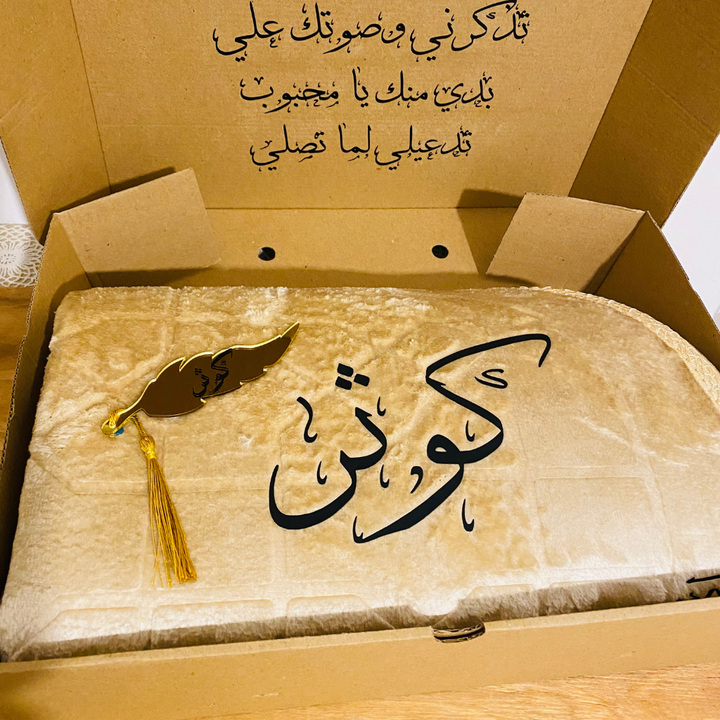 تذكرني وصوتك علي
بدي منك يا محبوب
تدعيلي لما تصلي
كوثر